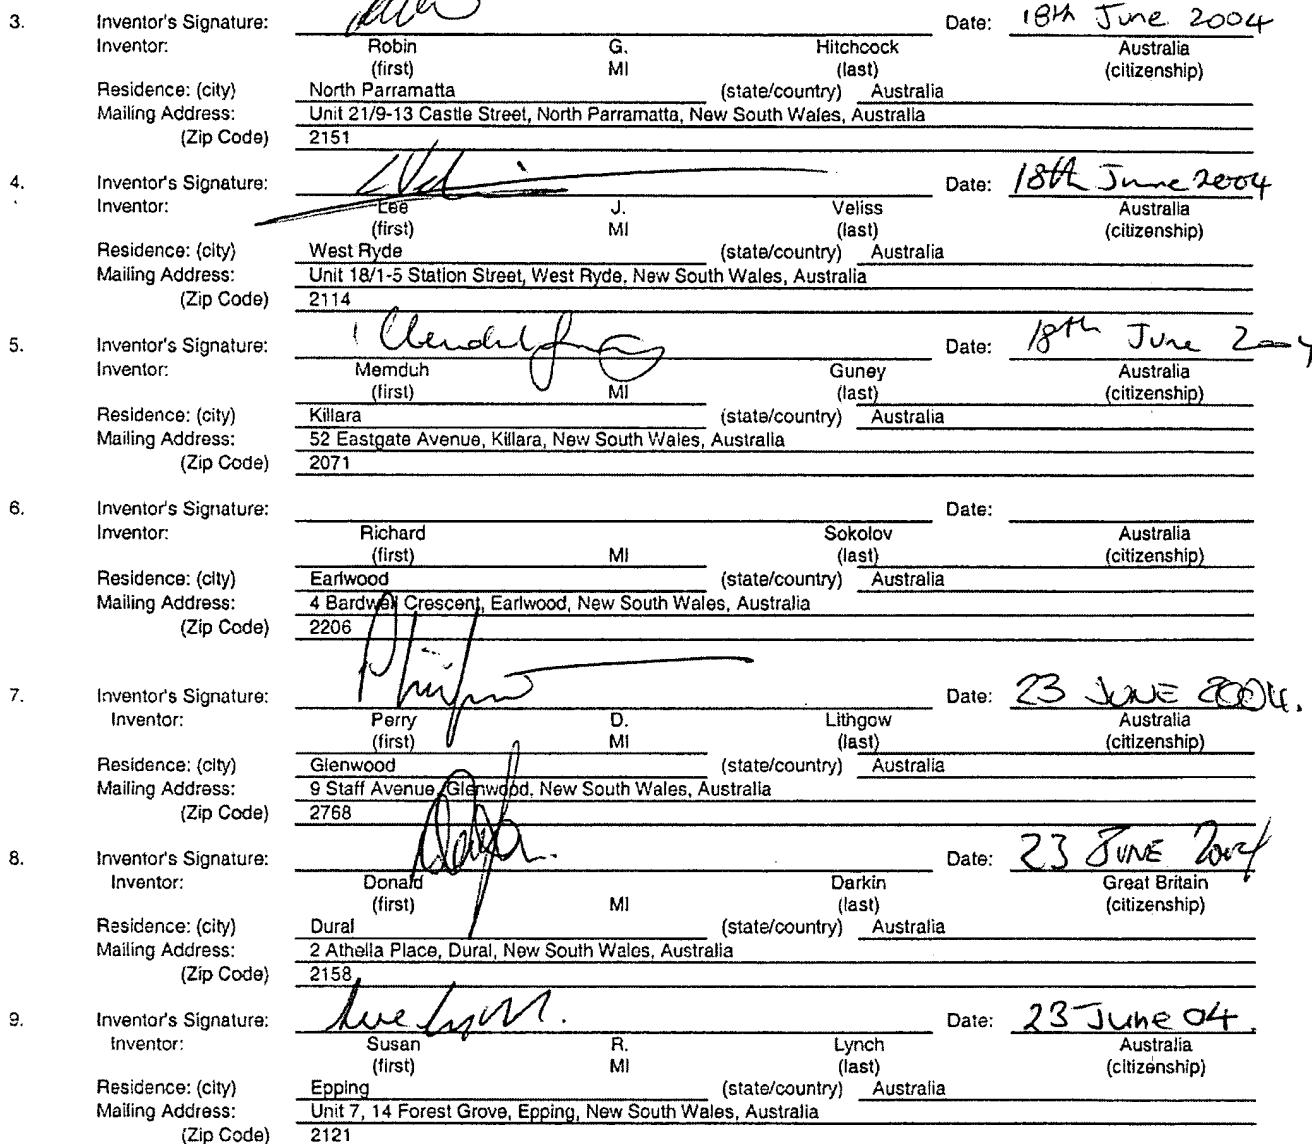 3. Inventor's Signature: Date: 18th June 2004
Inventor: Robin G. Hitchcock Australia
(first) MI (last) (citizenship)
Residence: (city) North Parramatta (state/country) Australia
Mailing Address: Unit 21/9-13 Castle Street, North Parramatta, New South Wales, Australia
(Zip Code) 2151
4. Inventor's Signature: Date: 18th June 2004
Inventor: Lee J. Veliss Australia
(first) MI (last) (citizenship)
Residence: (city) West Ryde (state/country) Australia
Mailing Address: Unit 18/1-5 Station Street, West Ryde, New South Wales, Australia
(Zip Code) 2114
5. Inventor's Signature: Date: 18th June 2004
Inventor: Memduh Guney Australia
(first) MI (last) (citizenship)
Residence: (city) Killara (state/country) Australia
Mailing Address: 52 Eastgate Avenue, Killara, New South Wales, Australia
(Zip Code) 2071
6. Inventor's Signature: Date:
Inventor: Richard Sokolov Australia
(first) MI (last) (citizenship)
Residence: (city) Earlwood (state/country) Australia
Mailing Address: 4 Bardwell Crescent, Earlwood, New South Wales, Australia
(Zip Code) 2206
7. Inventor's Signature: Date: 23 JUNE 2004.
Inventor: Perry D. Lithgow Australia
(first) MI (last) (citizenship)
Residence: (city) Glenwood (state/country) Australia
Mailing Address: 9 Staff Avenue, Glenwood, New South Wales, Australia
(Zip Code) 2768
8. Inventor's Signature: Date: 23 JUNE 2004
Inventor: Donald Darkin Great Britain
(first) MI (last) (citizenship)
Residence: (city) Dural (state/country) Australia
Mailing Address: 2 Athella Place, Dural, New South Wales, Australia
(Zip Code) 2158
9. Inventor's Signature: Date: 23 June 04.
Inventor: Susan R. Lynch Australia
(first) MI (last) (citizenship)
Residence: (city) Epping (state/country) Australia
Mailing Address: Unit 7, 14 Forest Grove, Epping, New South Wales, Australia
(Zip Code) 2121